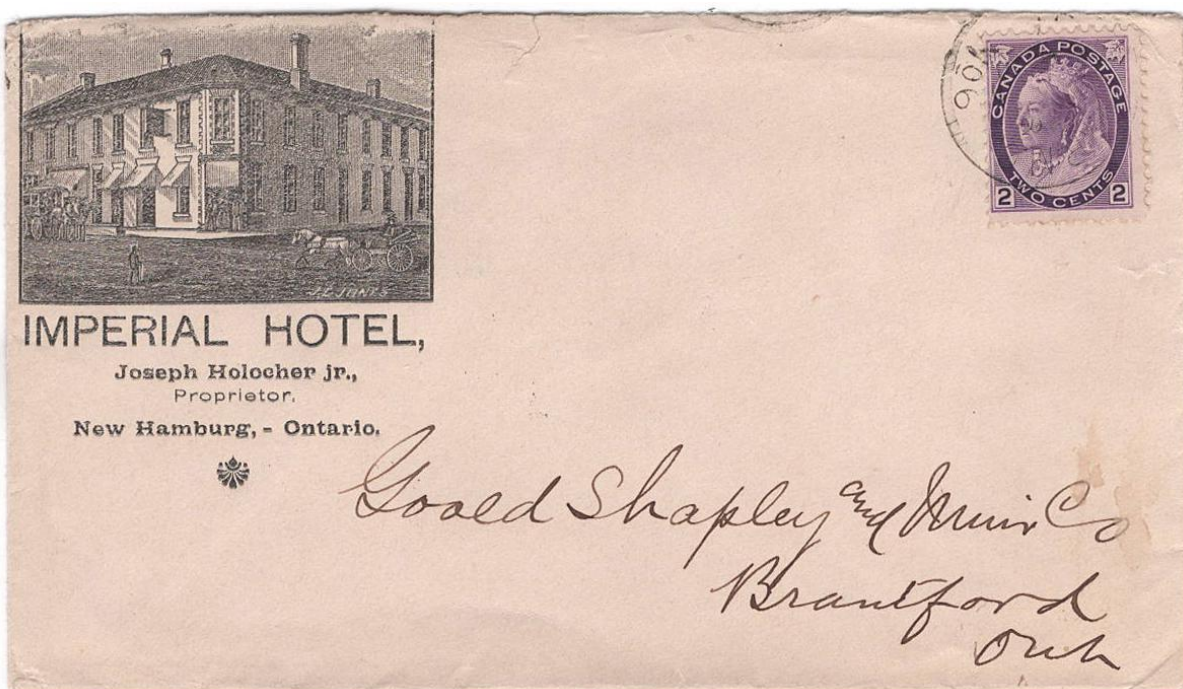 J.L. JONES
IMPERIAL HOTEL,
Joseph Holocher jr.,
Proprietor.
New Hamburg, - Ontario.
CANADA POSTAGE
TWO CENTS
2 2
Goold Shapley and Muir Co
Brantford
Ont